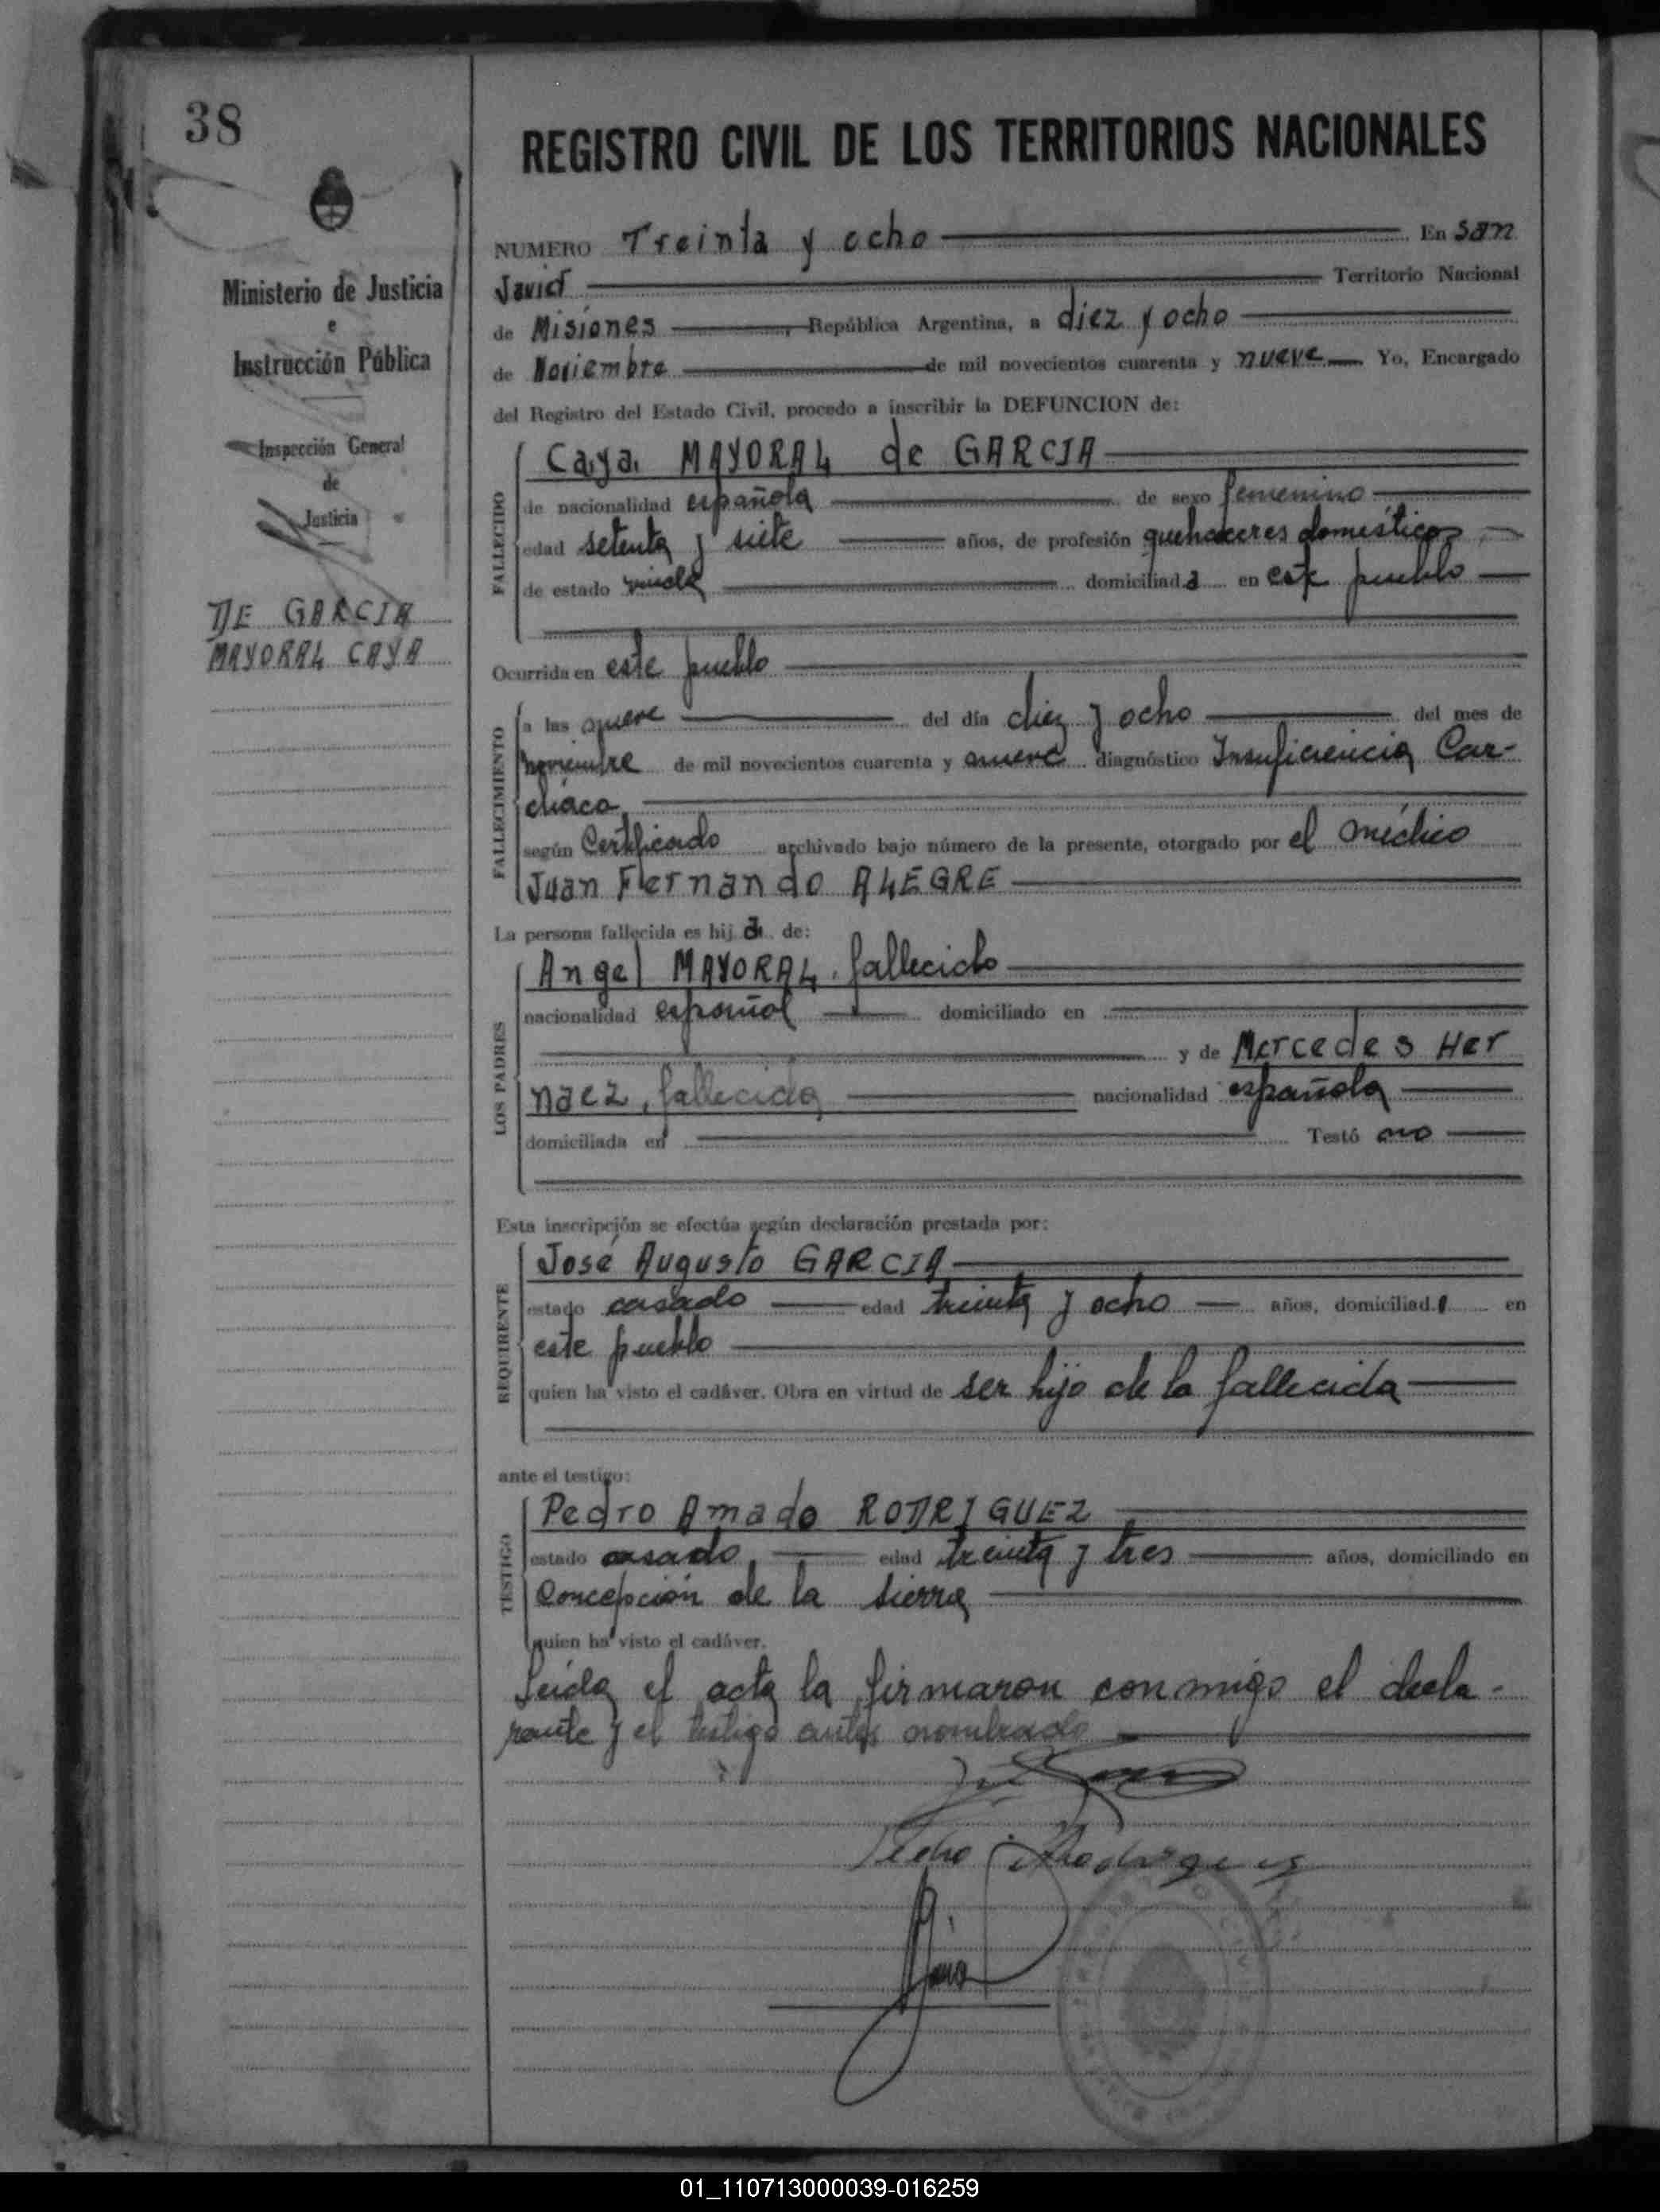 38
Ministerio de Justicia
e
Instrucción Pública
Inspección General
de
Justicia
DE GARCIA
MAYORAL CAYA
REGISTRO CIVIL DE LOS TERRITORIOS NACIONALES
NUMERO Treinta y ocho En San
Javier Territorio Nacional
de Misiones, República Argentina, a diez y ocho
de Noviembre de mil novecientos cuarenta y nueve Yo, Encargado
del Registro del Estado Civil, procedo a inscribir la DEFUNCION de:
FALLECIDO
Caya MAYORAL de GARCIA
de nacionalidad española de sexo femenino
edad setenta y siete años, de profesión quehaceres domésticos
de estado viuda domiciliada en este pueblo
Ocurrida en este pueblo
FALLECIMIENTO
a las nueve del día diez y ocho del mes de
noviembre de mil novecientos cuarenta y nueve diagnóstico Insuficiencia Car-
díaca
según Certificado archivado bajo número de la presente, otorgado por el médico
Juan Fernando ALEGRE
La persona fallecida es hija de:
LOS PADRES
Angel MAYORAL, fallecido
nacionalidad español domiciliado en
y de Mercedes Her
naez, fallecida nacionalidad española
domiciliada en Testó no
Esta inscripción se efectúa según declaración prestada por:
REQUIRENTE
José Augusto GARCIA
estado casado edad treinta y ocho años, domiciliado en
este pueblo
quien ha visto el cadáver. Obra en virtud de ser hijo de la fallecida
ante el testigo:
TESTIGO
Pedro Amado RODRIGUEZ
estado casado edad treinta y tres años, domiciliado en
Concepción de la Sierra
quien ha visto el cadáver.
Leída el acta la firmaron conmigo el decla-
rante y el testigo antes nombrado
Pedro Rodriguez
01_110713000039-016259